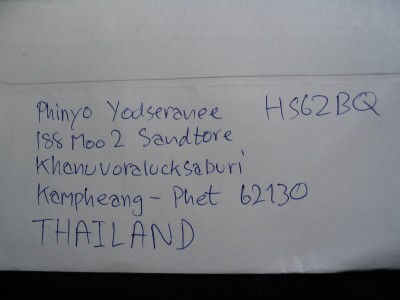 Phinyo Yodseranee HS62BQ
188 Moo 2 Sandtore
Khanuvoralucksaburi
Kampheang - Phet 62130
THAILAND